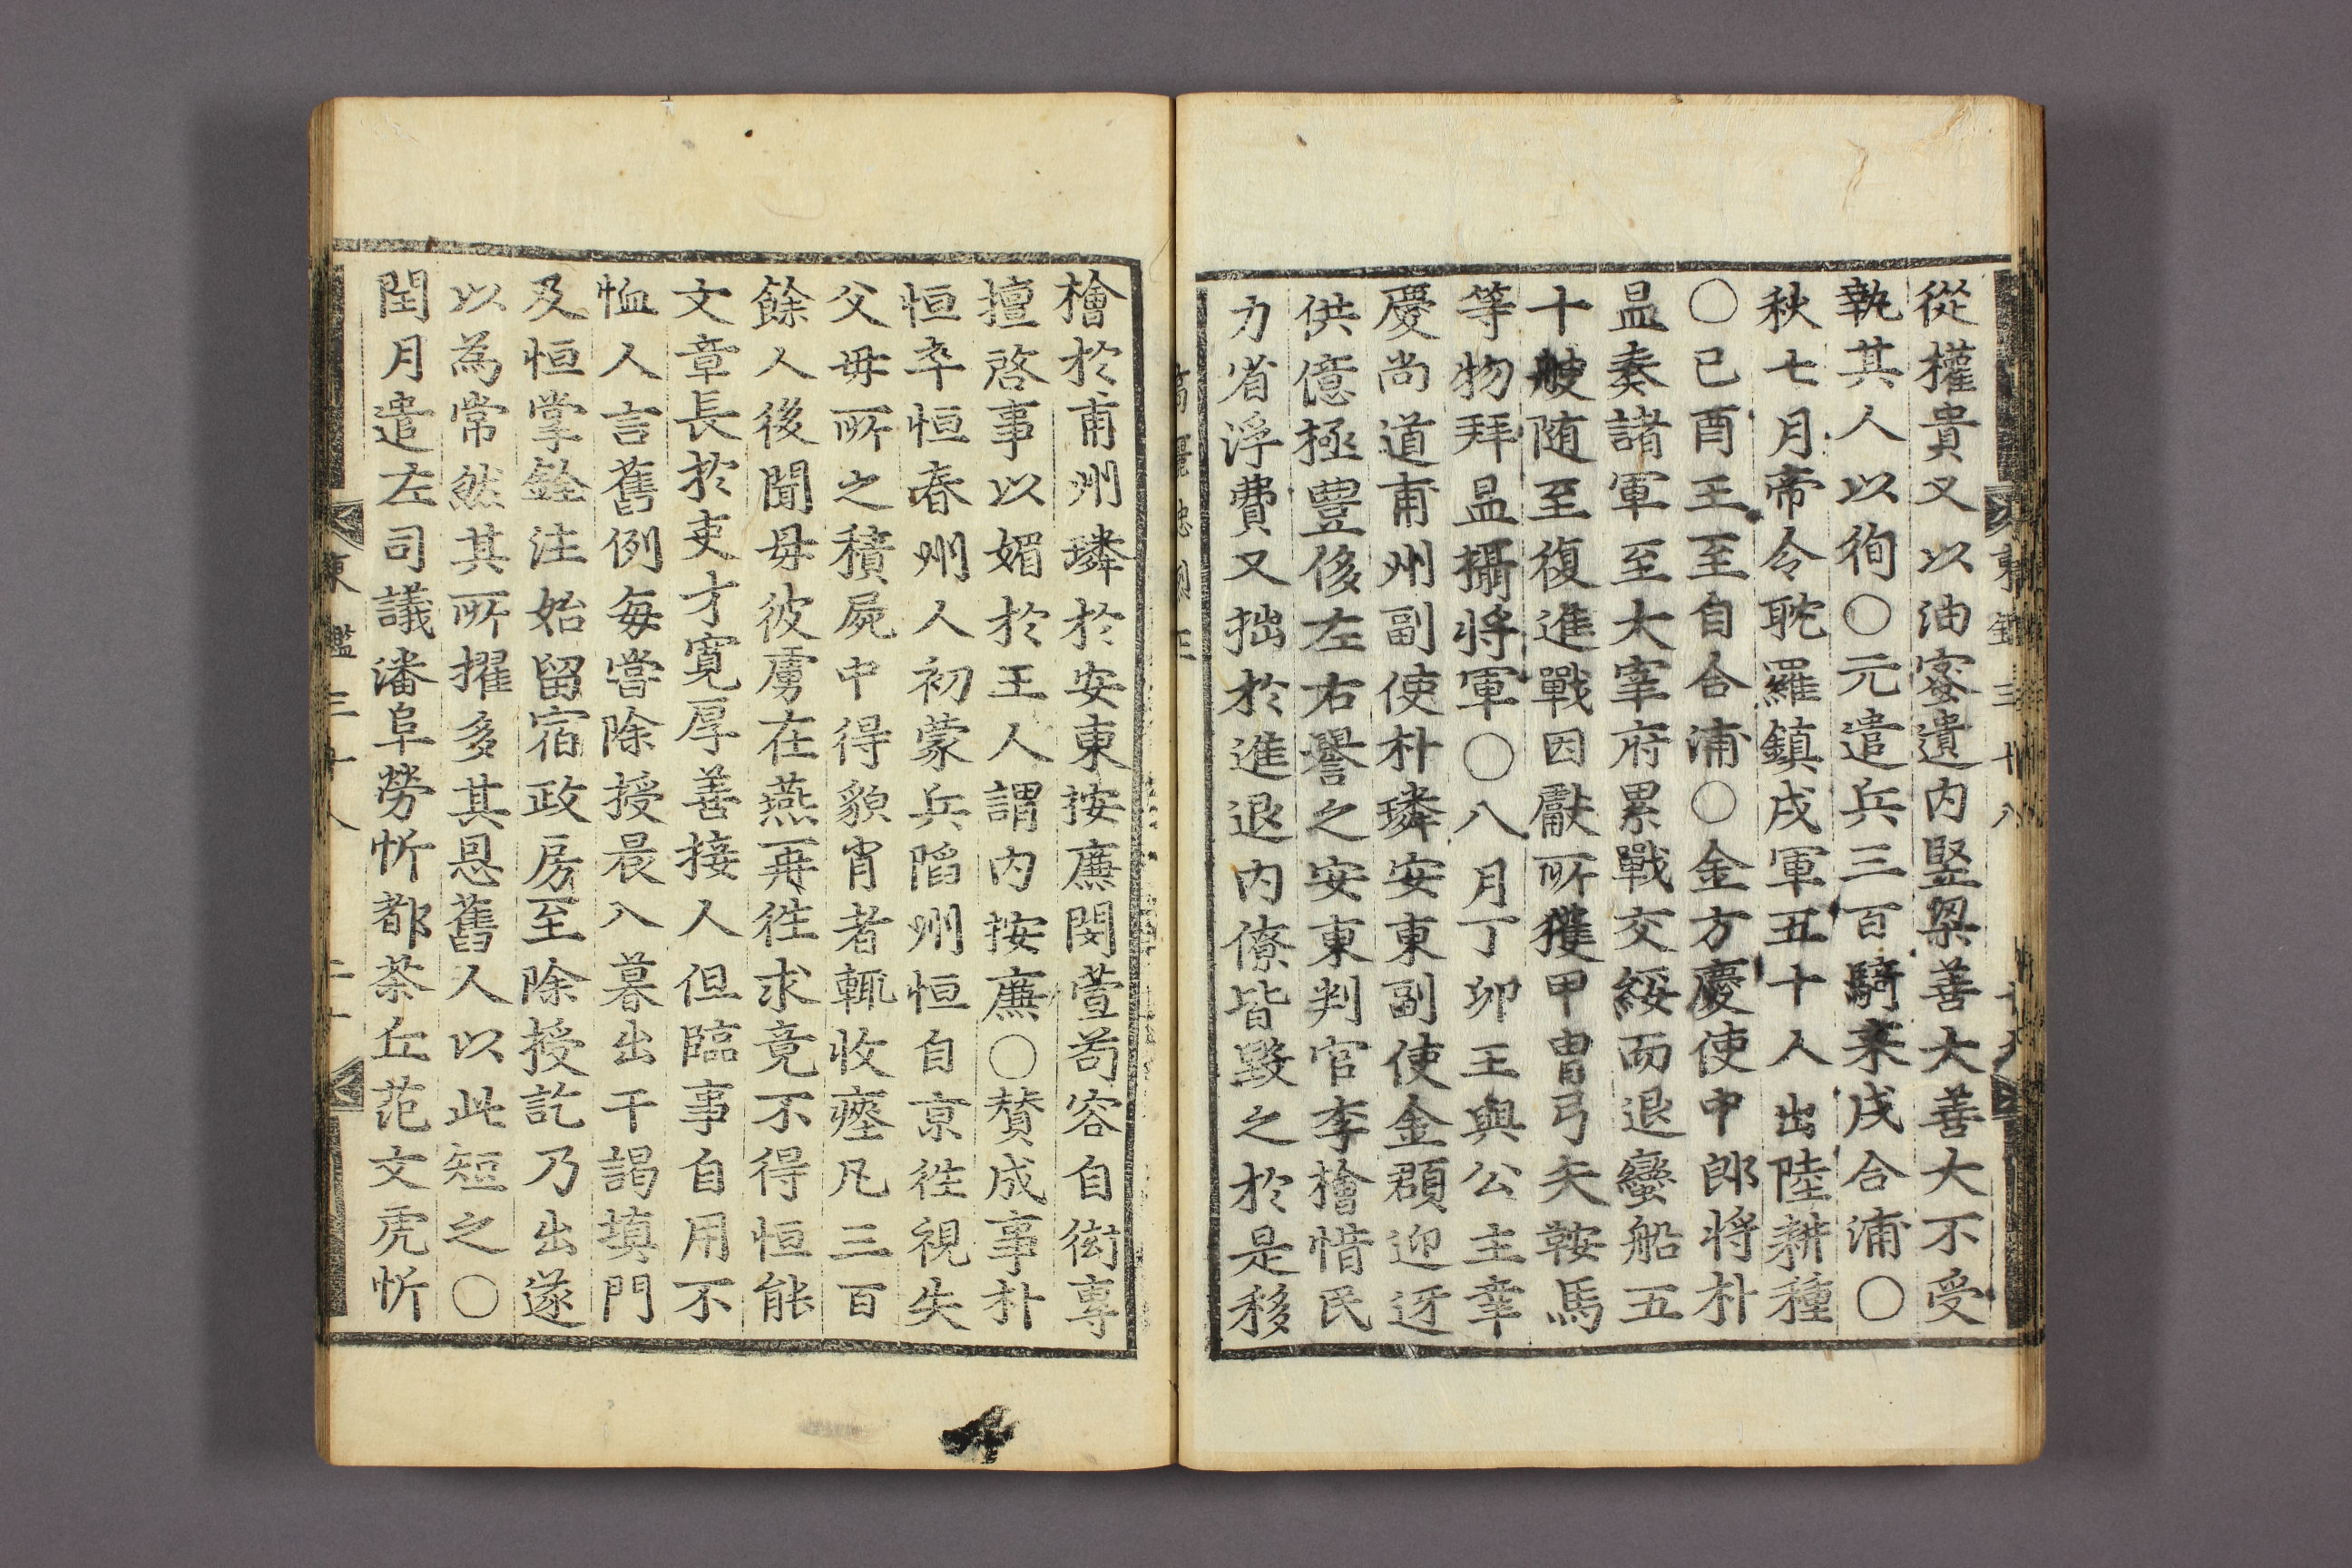 從權貴又以油蜜遺内竪梁善大善大不受
執其人以徇〇元遣兵三百騎来戍合浦〇
秋七月帝令耽羅鎮戍軍五十人出陸耕種
〇己酉王至自合浦〇金方慶使中郎將朴
昷奏諸軍至大宰府累戰交綏而退蠻船五
十艘随至復進戰因獻所獲甲冑弓矢鞍馬
等物拜昷攝將軍〇八月丁卯王與公主幸
慶尚道甫州副使朴璘安東副使金頵迎迓
供億極豊侈左右譽之安東判官李檜惜民
力省浮費又拙於進退内僚皆毀之於是移
檜於甫州璘於安東按廉閔萱苟容自衒專
擅啓事以媚於王人謂内按廉〇賛成事朴
恒卒恒春州人初蒙兵陷州恒自京徃視失
父毋所之積屍中得貌肖者輒收瘞凡三百
餘人後聞毋彼虜在燕再徃求竟不得恒能
文章長於吏才寬厚善接人但臨事自用不
恤人言舊例每嘗除授晨入暮出干謁填門
及恒掌銓注始留宿政房至除授訖乃出遂
以為常然其所擢多其恩舊人以此短之〇
閏月遣左司議潘阜勞忻都茶丘范文虎忻
東鑑三十八